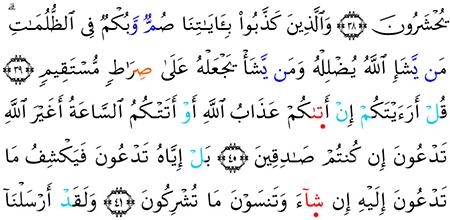 يُحْشَرُونَ ﴿٣٨﴾ وَٱلَّذِينَ كَذَّبُوا۟ بِـَٔايَـٰتِنَا صُمٌّ وَبُكْمٌ فِى ٱلظُّلُمَـٰتِ ۗ
مَن يَشَإِ ٱللَّهُ يُضْلِلْهُ وَمَن يَشَأْ يَجْعَلْهُ عَلَىٰ صِرَٰطٍ مُّسْتَقِيمٍ ﴿٣٩﴾
قُلْ أَرَءَيْتَكُمْ إِنْ أَتَىٰكُمْ عَذَابُ ٱللَّهِ أَوْ أَتَتْكُمُ ٱلسَّاعَةُ أَغَيْرَ ٱللَّهِ
تَدْعُونَ إِن كُنتُمْ صَـٰدِقِينَ ﴿٤٠﴾ بَلْ إِيَّاهُ تَدْعُونَ فَيَكْشِفُ مَا
تَدْعُونَ إِلَيْهِ إِن شَآءَ وَتَنسَوْنَ مَا تُشْرِكُونَ ﴿٤١﴾ وَلَقَدْ أَرْسَلْنَآ